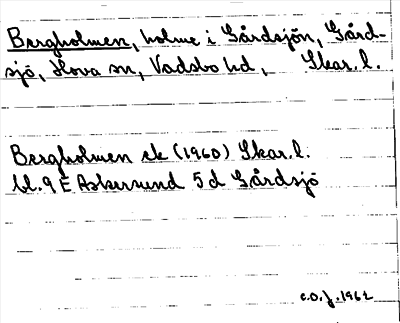 Bergholmen, holme i Gårdsjön, Gård-
sjö, Hova sn, Vadsbo hd, Skar. l.
Bergholmen ek (1960) Skar. l.
bl. 9 E Askersund 5d Gårdsjö
C.O.J. 1962